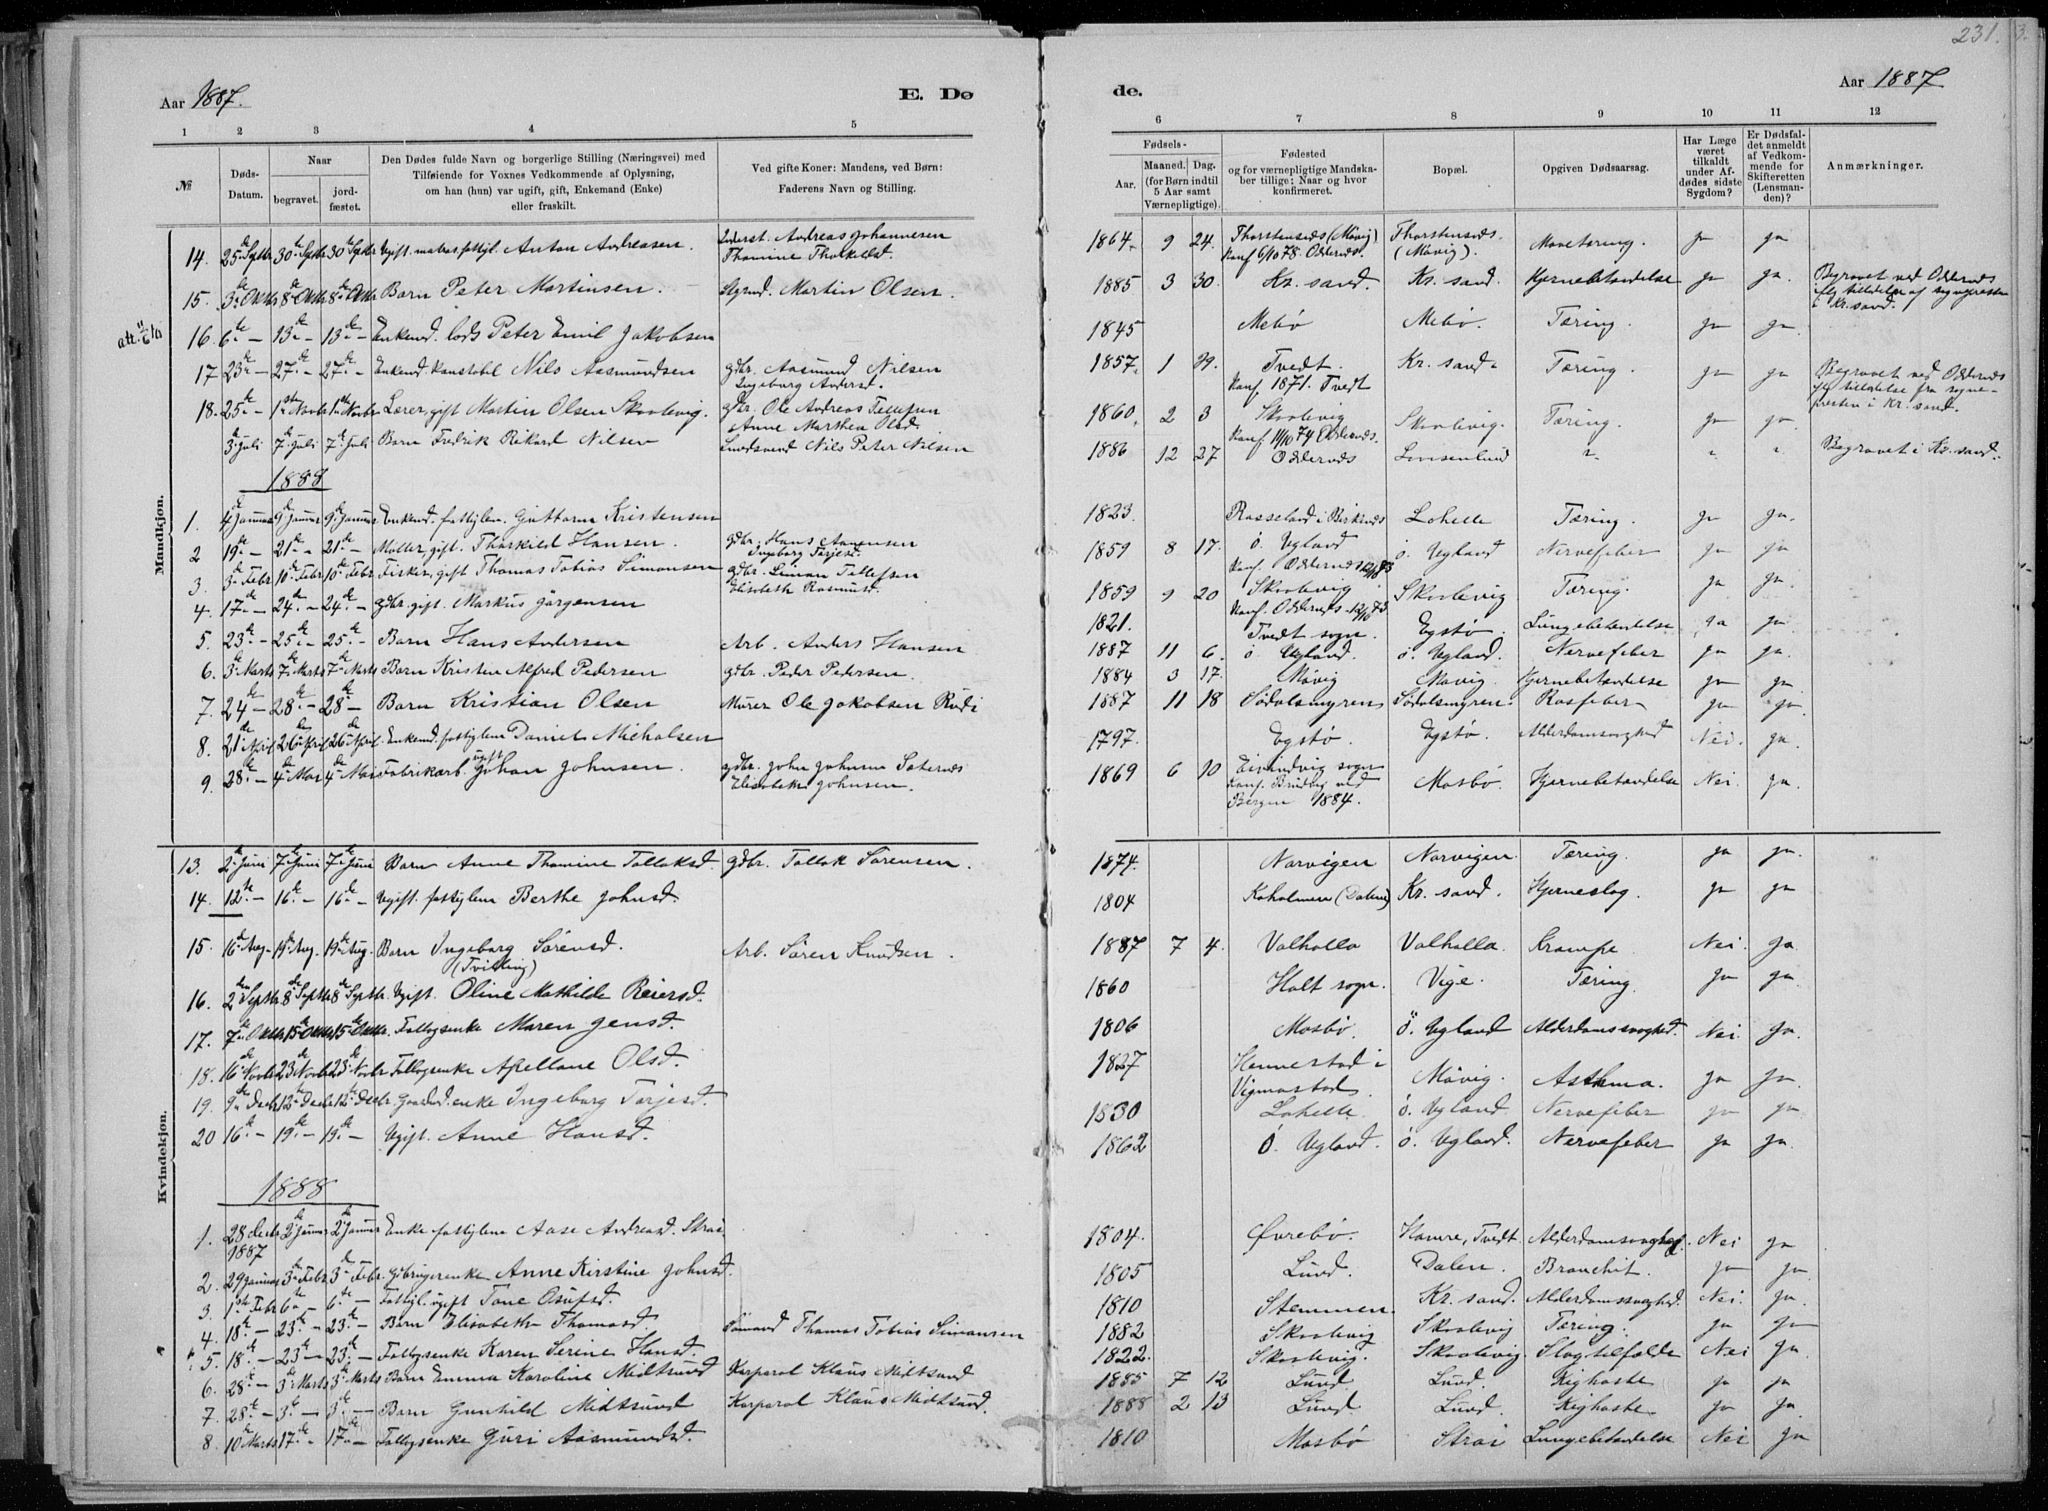 231.
Aar 1887.
E. Dø
de.
Aar 1887
1 2 3 4 5
6 7 8 9 10 11 12
№
Døds-Datum.
Naar
begravet.
jordfæstet.
Den Dødes fulde Navn og borgerlige Stilling (Næringsvei) med
Tilføiende for Voxnes Vedkommende af Oplysning,
om han (hun) var ugift, gift, Enkemand (Enke)
eller fraskilt.
Ved gifte Koner: Mandens, ved Børn:
Faderens Navn og Stilling.
Fødsels-
Aar.
Maaned.
Dag.
(for Børn indtil
5 Aar samt
Værnepligtige).
Fødested
og for værnepligtige Mandska-
ber tillige: Naar og hvor
konfirmeret.
Bopæl.
Opgiven Dødsaarsag.
Har Læge
været
tilkaldt
under Af-
dødes sidste
Sygdom?
Er Dødsfal-
det anmeldt
af Vedkom-
mende for
Skifteretten
(Lensman-
den)?
Anmærkninger.
Mandkjøn.
14. 25de Septbr 30te Septbr 30te Septbr Ugift. matros fattigl. Anton Andreasen. Inderst. Andreas Johannesen 1864. 9 24. Thorstensnes (Måvig) Thorstensnes Mavetæring. ja ja
Thomine Thorkildsd. Konf. 6/10 78. Oddernes. (Måvig).
15. 3de Oktbr 8de Oktbr 8de Oktbr Barn Peter Martinsen. Styrmd. Martin Olsen. 1885 3 30. Kr. sand. Kr. sand. Hjernebetændelse ja ja. Begravet ved Oddernes
ifølg tilladelse af sognepresten
i Kr. sand.
16. 6te — 13de — 13de — Enkemd. lods Peter Emil Jakobsen 1845 Mebø Mebø. Tæring. ja ja.
17 23de — 27de — 27de — Enkemd. konstabl Nils Aasmundsen gdbr. Aasmund Nilsen 1857. 1 29. Tvedt. Kr. sand. Tæring. ja ja Begravet ved Oddernes
Ingeborg Andersd. Konf. 1871. Tvedt tilladelse fra sogne-
presten i Kr. sand.
18. 25de — 1ste Novbr 1ste Novbr Lærer, gift Martin Olsen Skaalevig. gdbr. Ole Andreas Tellefsen 1860. 2 3 Skaalevig Skaalevig. Tæring. ja ja
Anne Marthea Olsd. Konf. 11/10 74 Oddernes.
3de Juli 7de Juli 7de Juli Barn Fredrik Rikard Nilsen Nils Peter Nilsen 1886 12 27 Oddernes " " " Begravet i Kr. sand.
1888
1. 4de Januar 9de Januar 9de Januar Enkemd. fattiglem. Guttorm Kristensen 1823. Rosseland i Birkenes Lohelle Tæring. ja ja.
2 19de — 21de — 21de — Møller, gift. Thorkild Hansen. gdbr. Hans Aanensen 1859 8 17. ö. Vgland ö. Vgland Nervefeber ja ja
Ingeborg Terjesd. Konf. Oddernes
3. 3de Febr 10de Febr 10de Febr Fisker, gift Thomas Tobias Simonsen gdbr. Simon Tellefsen 1859 9 20 Skaalevig Skaalevig Tæring. ja ja.
Elisabeth Rasmusd. Konf. Oddernes
4. 17de — 24de — 24de — gdbr. gift. Markus Jörgensen 1821. Tvedt sogn. Egstø. Lungebetændelse ja ja.
5. 23de — 25de — 25de — Barn Hans Andersen Arb. Anders Hansen 1887 11 6. ö. Vgland. ö. Vgland. Nervefeber ja ja.
6. 3de Marts 7de Marts 7de Marts Barn Kristen Alfred Pedersen gdbr. Peder Pedersen. 1884 3 17. Måvig Måvig. Hjernebetændelse ja ja.
7. 24de — 28de — 28de — Barn Kristian Olsen Murer Ole Jakobsen 1887 11 18 Sødalsmyren Sødalsmyren. Rosfeber ja ja.
8. 21de April 26de April 26de April Enkemd. fattiglem Daniel Michalsen 1797. Egstø. Egstø. Alderdomssvaghed Nei. ja.
9. 28de — 4de Mai 4de Mai Fabrikarb. ugift Johan Johnsen. gdbr. John Johnsen 1869 6 10 Eivindvig sogn Mosbø. Hjernebetændelse Nei. ja.
Elisabeth Johnsen. Konf. ved
Bergen 1884.
Kvindekjøn.
13. 2den Juni 7de Juni 7de Juni Barn Anne Thomine Tallaksd. gdbr. Tallak Sørensen. 1874. Narvigen Narvigen. Tæring. ja ja.
14. 12te — 16de — 16de — Ugift. fattiglem Berthe Johnsd. 1804 Kaholmen (Dalene) Kr. sand. Hjerneslag ja ja
15. 16de Aug. 19de Aug. 19de Aug. Barn Ingeborg Sørensd. Arb. Søren Knudsen. 1887 7 4. Valhalla Valhalla. Krampe Nei. ja
(Tvilling)
16. 2den Septbr 8de Septbr 8de Septbr. Ugift. Oline Mathilde Reiersd. 1860 Holt sogn. Vige. Tæring. ja ja.
17. 7de Oktbr 15de Oktbr 15de Oktbr. Fattigenke Maren Jensd. 1806 Mosbø. ö. Vgland Alderdomssvaghed. Nei. ja.
18. 16de Novbr 23de Novbr 23de Novbr Apellone Olsd. 1827 Hennestad i Måvig. Asthma. ja ja.
Vigmostad
19. 9de Decbr 12te Decbr 12te Decbr. enke Ingeborg Terjesd. 1830 Lohelle. ö. Vgland. Nervefeber ja ja.
20 16de — 19de — 19de — Ugift. Anne Hansd. 1862 ö. Vgland. ö. Vgland. Nervefeber ja ja.
1888
1. 28 Decbr 2den Januar 2den Januar Enke fattiglem Aase Andreasd. Strai 1804. Øvrebø. Hamre, Tvedt. Alderdomssvaghed. Nei ja
1887
2. 29 Januar 3de Febr 3de Febr. Anne Kirstine Johnsd. 1805 Lund. Dalen. Bronchit. ja ja.
3 1ste Febr 6te — 6te — Fattigl. ugift Tone Osufsd. 1810 Stemmen. Kr. sand. Alderdomssvaghed. Nei. ja.
4. 18de — 23de — 23de — Barn Elisabeth Thomasd. Sømand Thomas Tobias Simonsen 1882 Skaalevig Skaalevig Tæring. ja ja
5. 18de — 23de — 23de — Karen Serine Hansd. 1822. Skaalevig. Skaalevig Slagtilfælde Nei ja.
6. 28de — 3de Marts 3de Marts Barn Emma Karoline Midtsund Korporal Klaus Midtsund 1885 7 12 Lund Lund. Kighoste ja ja
7. 28de — 3de — 3de — Barn Gunhild Midtsund Korporal Klaus Midtsund. 1888 2 13 Lund Lund. Kighoste ja ja.
8. 10de Marts 17de — 17de — Guri Aasmundsd. 1810 Mosbø Strai Lungebetændelse Nei ja